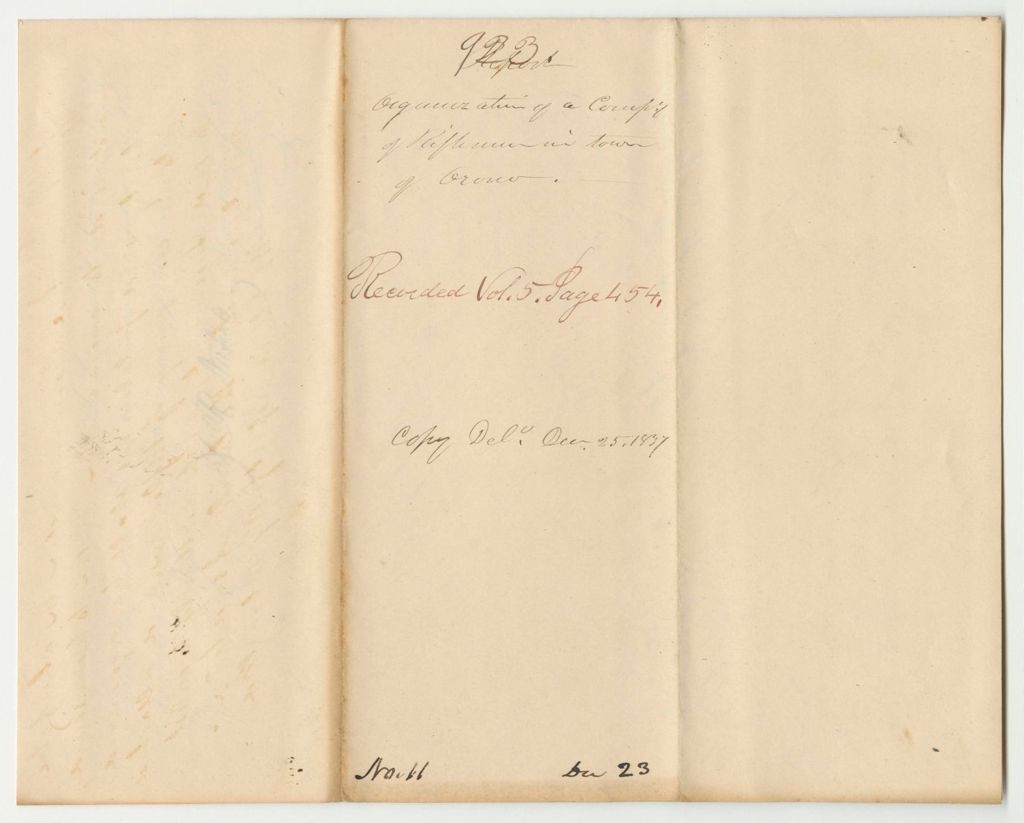 Report
Organization of a Comp'y
of Riflemen in town
of Orono.
Recorded Vol. 5. Page 454.
Copy Del'd. Dec. 25. 1837
No. 11 Dec 23